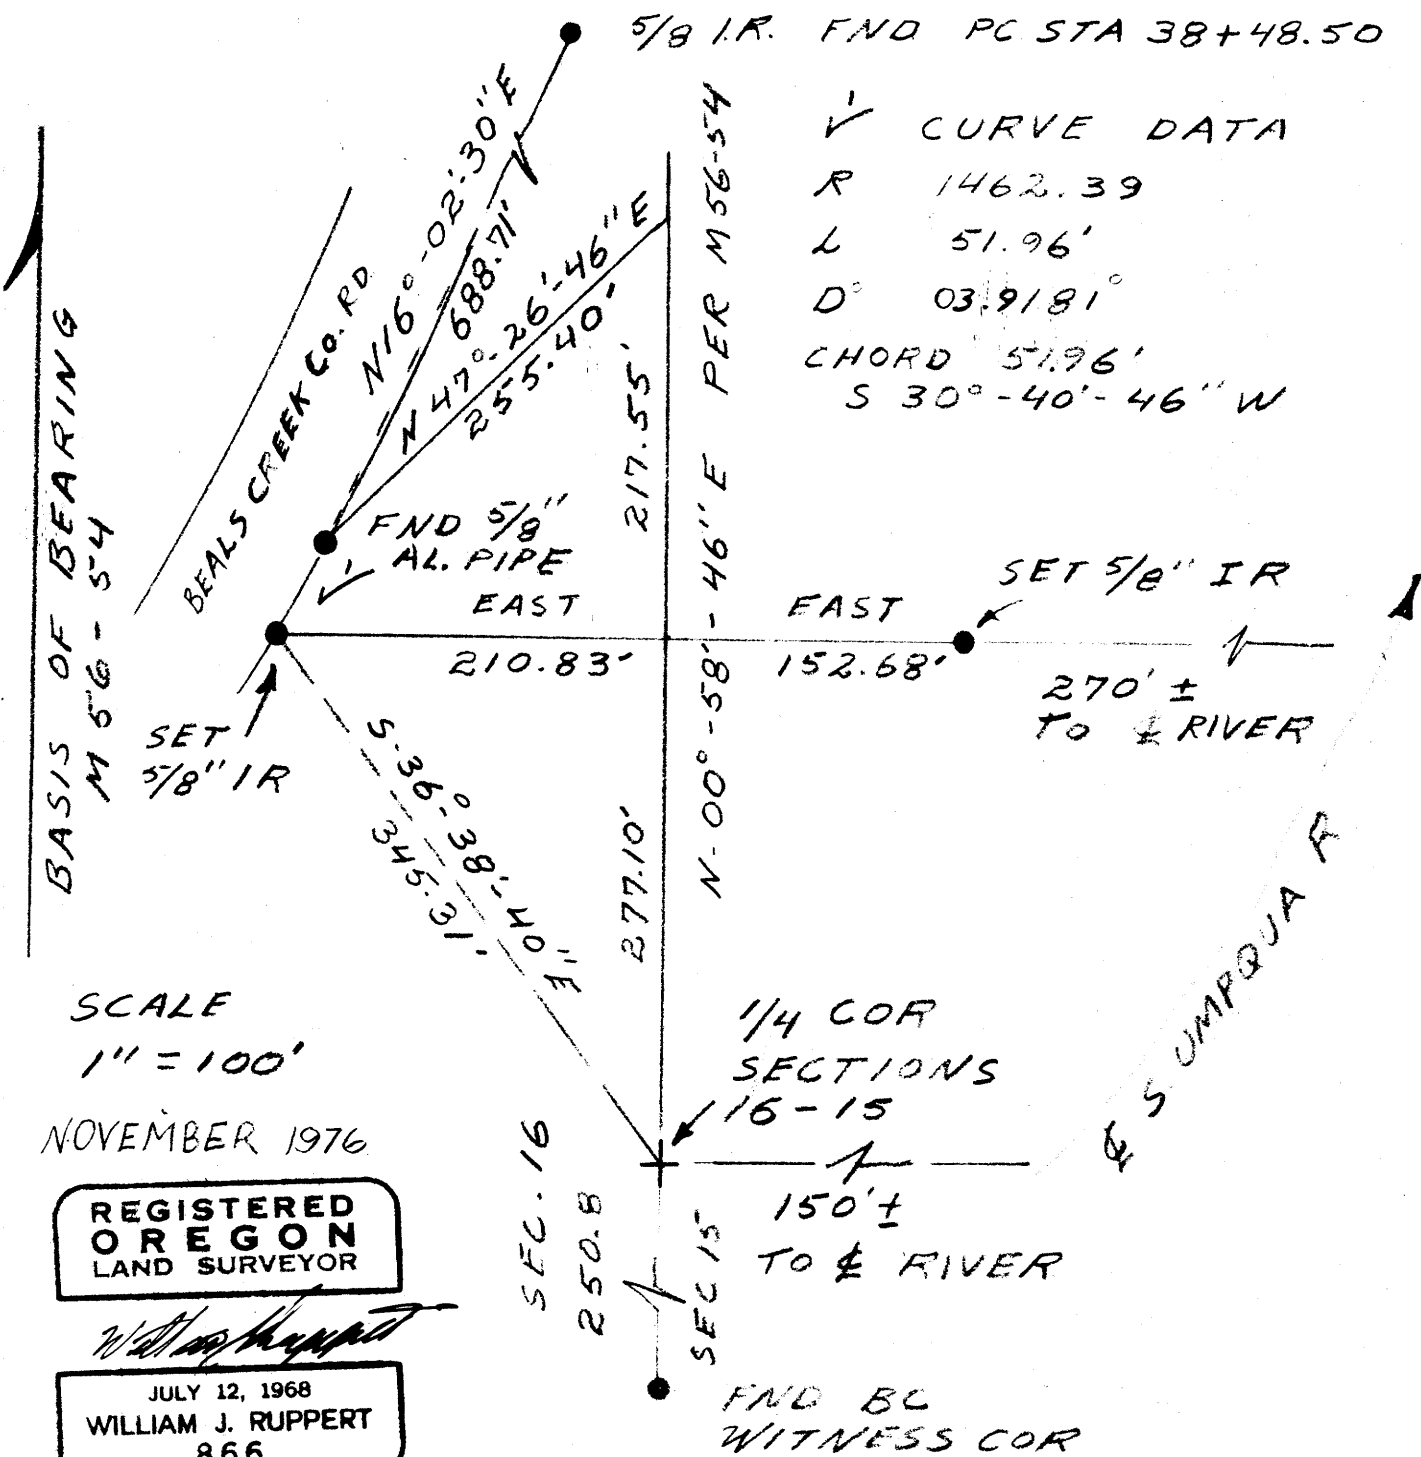 5/8 I.R. FND PC STA 38+48.50
1 CURVE DATA
R 1462.39
L 51.96'
D° 03.9181°
CHORD 51.96'
S 30°-40'-46" W
N16°-02'-30"E
688.71'
N 47°-26'-46"E
255.40'
BEALS CREEK Co. RD
BASIS OF BEARING
M 56-54
217.55'
N-00°-58'-46" E PER M56-54
FND 5/8"
AL. PIPE
1
EAST
210.83'
EAST
152.68'
SET 5/8" IR
270' ±
TO ℄ RIVER
SET
5/8" IR
S-36°-38'-40"E
345.31'
277.10'
℄ S. UMPQUA R
SCALE
1" = 100'
NOVEMBER 1976
1/4 COR
SECTIONS
16-15
150' ±
TO ℄ RIVER
SEC. 16
250.8
SEC 15
FND BC
WITNESS COR
REGISTERED
OREGON
LAND SURVEYOR
JULY 12, 1968
WILLIAM J. RUPPERT
866